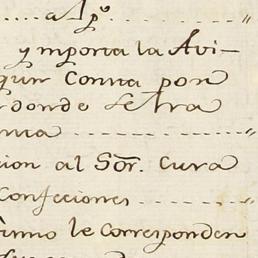 a Ap.º
y mporta la Avi-
quir Conna por
donde se tra
cion al Sõr. Cura
Confeciones
le corresponden